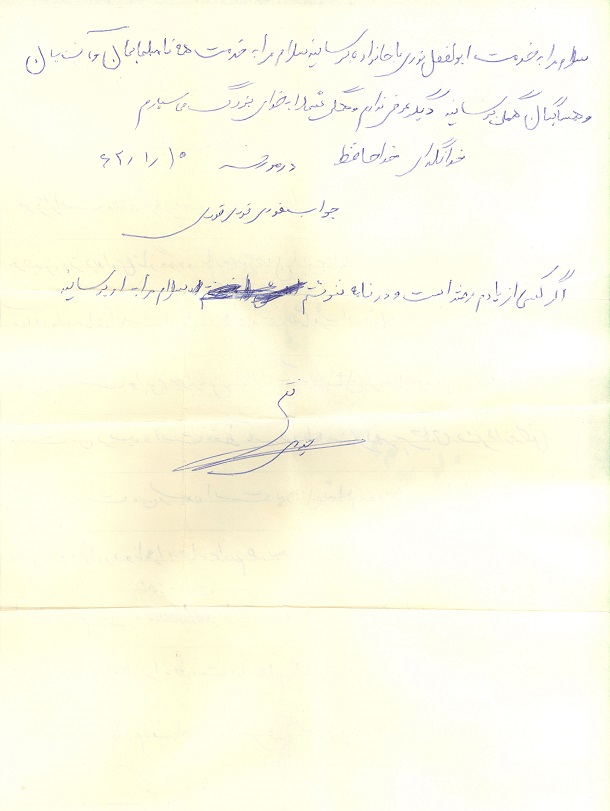 سلام مرا به خدمت ابولفضل نوری با خانواده برسانید سلام مرا به خدمت همه فامیلهایمان و آشنایان
و همسایگان همگی برسانید دیگر عرضی ندارم و همگی شما را به خدای بزرگ می سپارم
خدانگهدار خداحافظ در مورخه ۶۲/۱/۱۵
جواب فوری فوری فوری
اگر کسی از یادم رفته است و در نامه ننوشتم سلام مرا به او برسانید